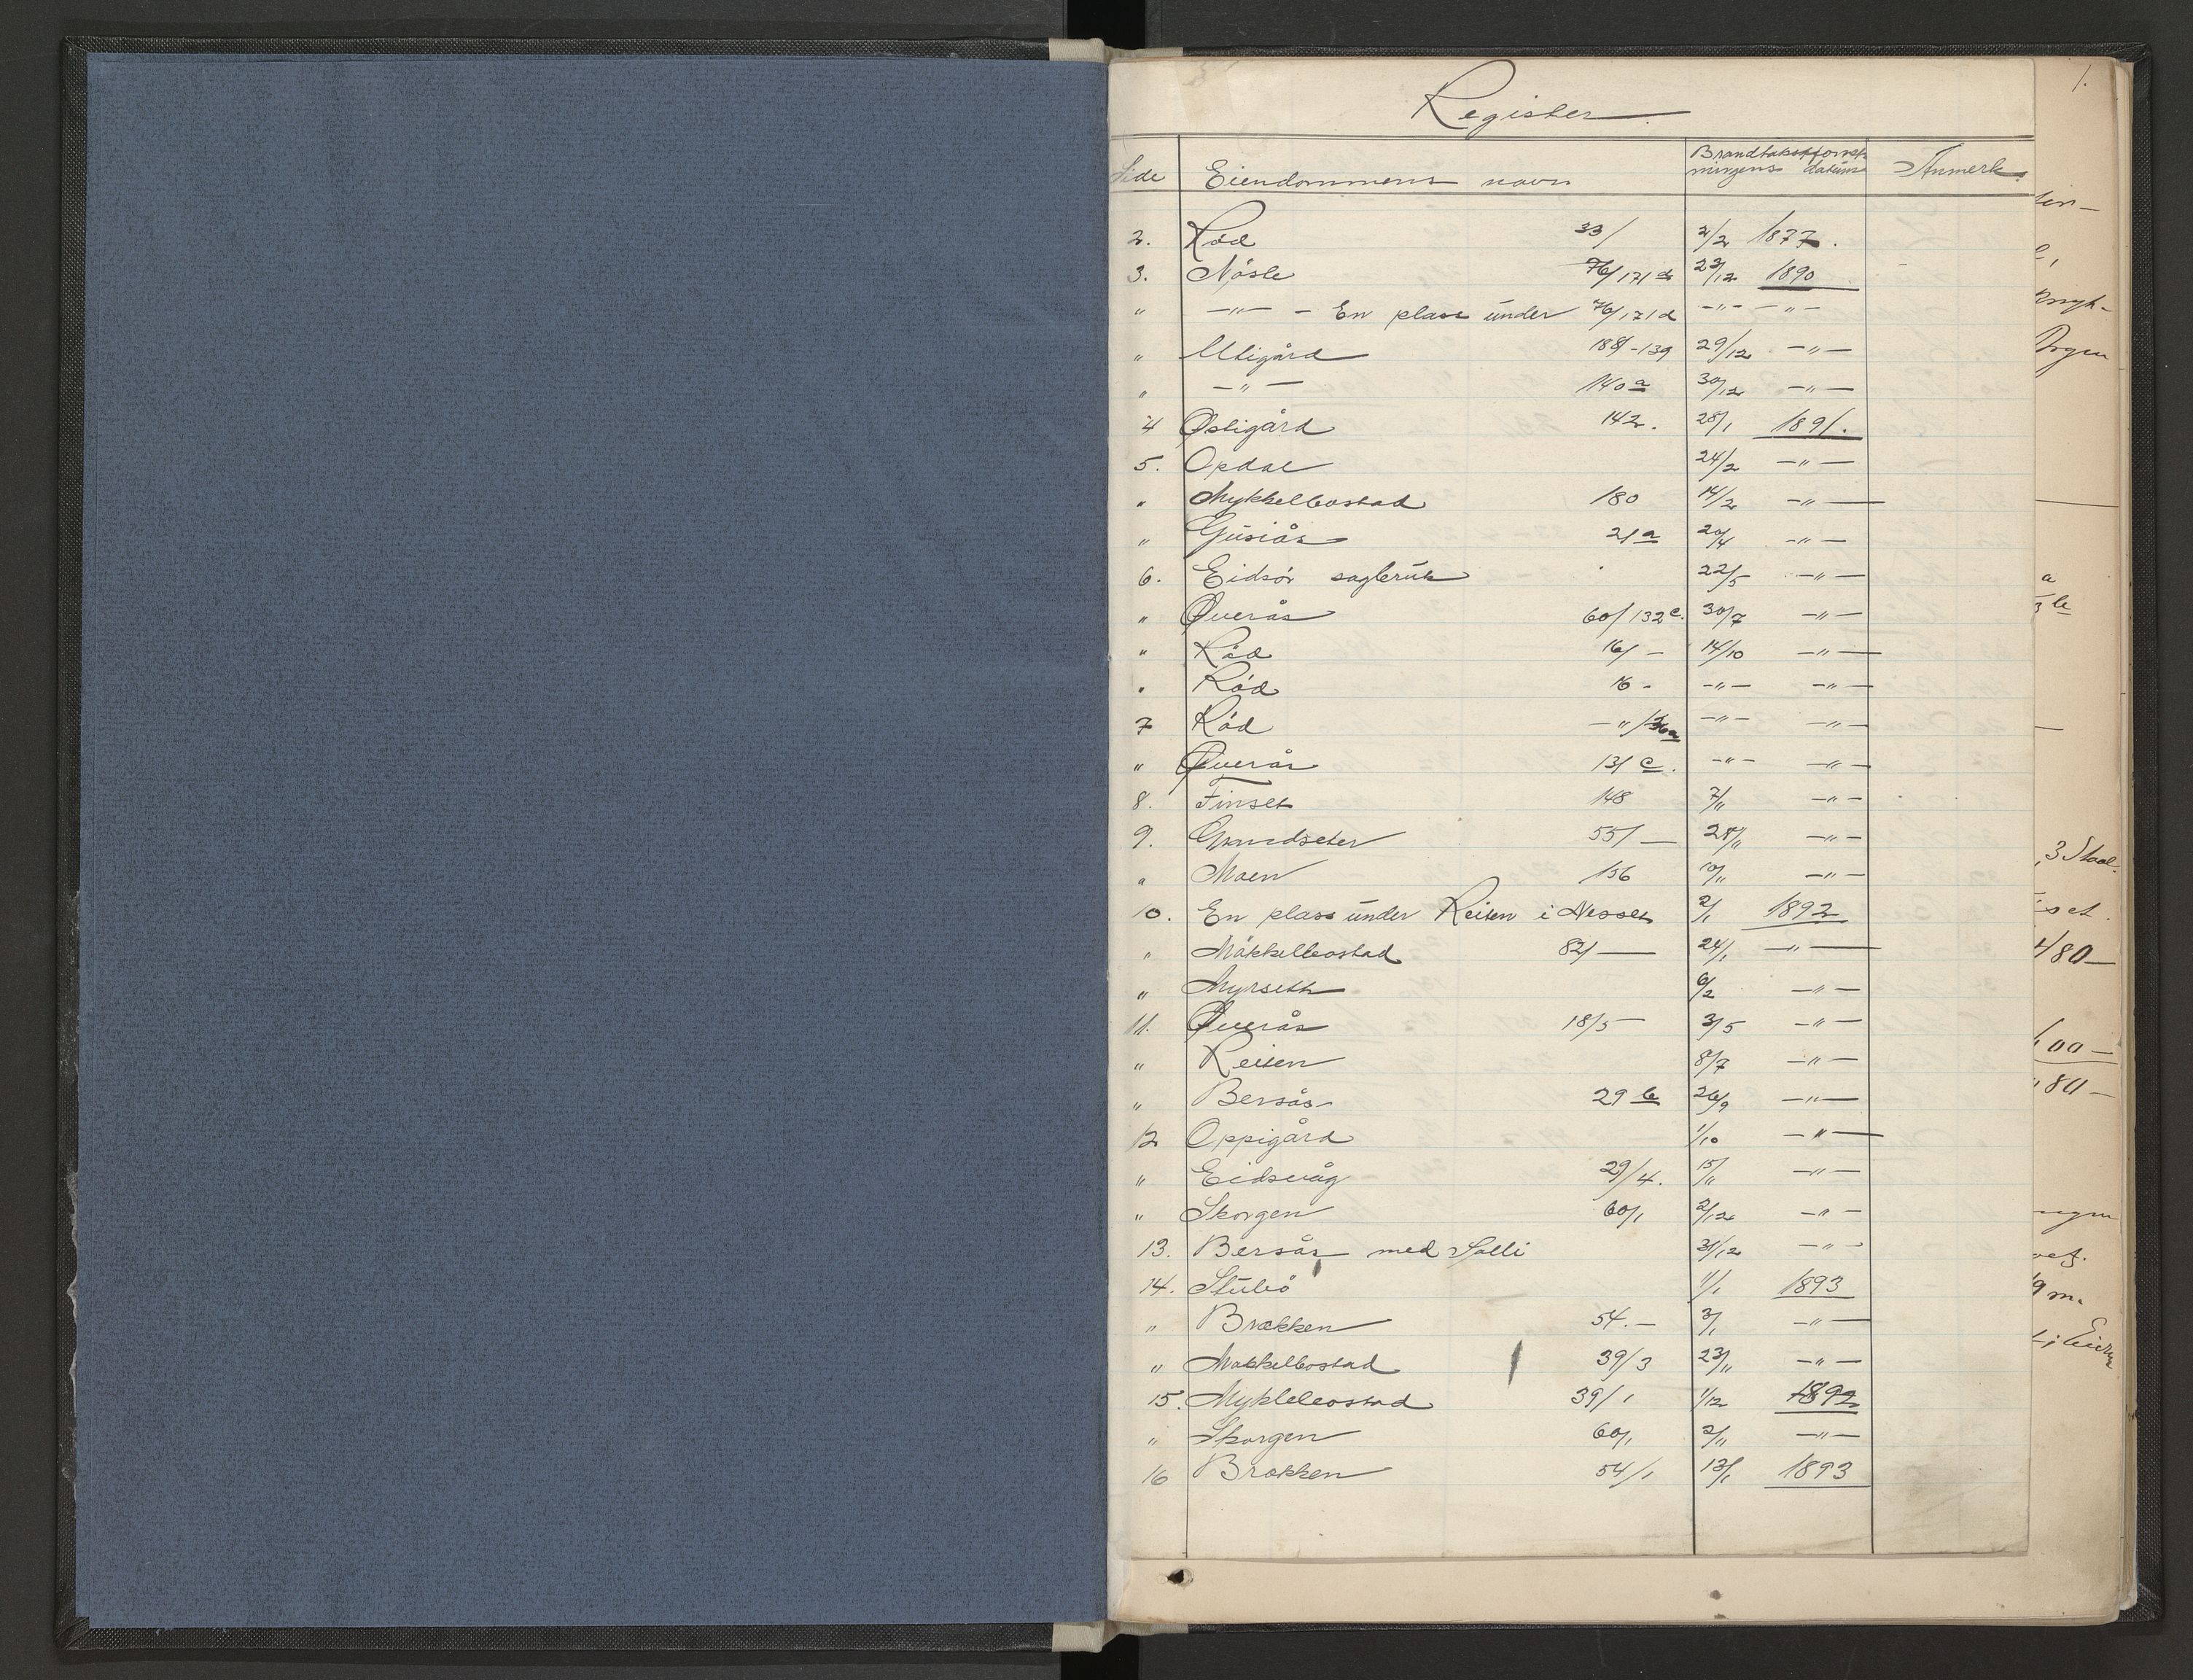 1.
Register
Side Eiendommens navn Brandtakstforret-
ningens datum Anmerk.
2. Röd 33/ 2/2 1877.
3. Nöste 76/171d 23/12 1890
" —"— - En plass under 76/171d —"— —"—
" Utigård 138/-139 29/12 —"—
" —"— 140a 30/12 —"—
4 Östigård 142. 28/1 1891.
5. Opdal 24/2 —"—
" Mykkelbostad 180 14/2 —"—
" Gusiås 21a 20/4 —"—
6. Eidsör sagbruk 22/5 —"—
" Överås 60/132c. 30/7 —"—
" Röd 16/ — 14/10 —"—
" Röd 16 - —"— —"—
7 Röd —"/36a —"— —"—
" Överås 131c. —"— —"—
8. Finset 148 7/11 —"—
9. Grandseter 55/ — 28/11 —"—
" Moen 156 10/11 —"—
10. En plass under Reiten i Nesset 2/1 1892
" Mökkelbostad 82/ — 24/1 —"—
" Myrseth 6/2 —"—
11. Överås 18/5 3/5 —"—
" Reiten 8/7 —"—
" Bersås 29b 26/9 —"—
12 Oppigård 1/10 —"—
" Eidsvåg 29/4. 15/11 —"—
" Skorgen 60/1 2/12 —"—
13. Bersås med Solli 31/12 —"—
14. Stubö 1/1 1893
" Brækken 54.— 3/1 —"—
" Mökkelbostad 39/3 23/11 —"—
15. Myklebostad 39/1 1/12 1892
" Skorgen 60/1 2/11 —"—
16 Brækken 54/1 13/1 1893